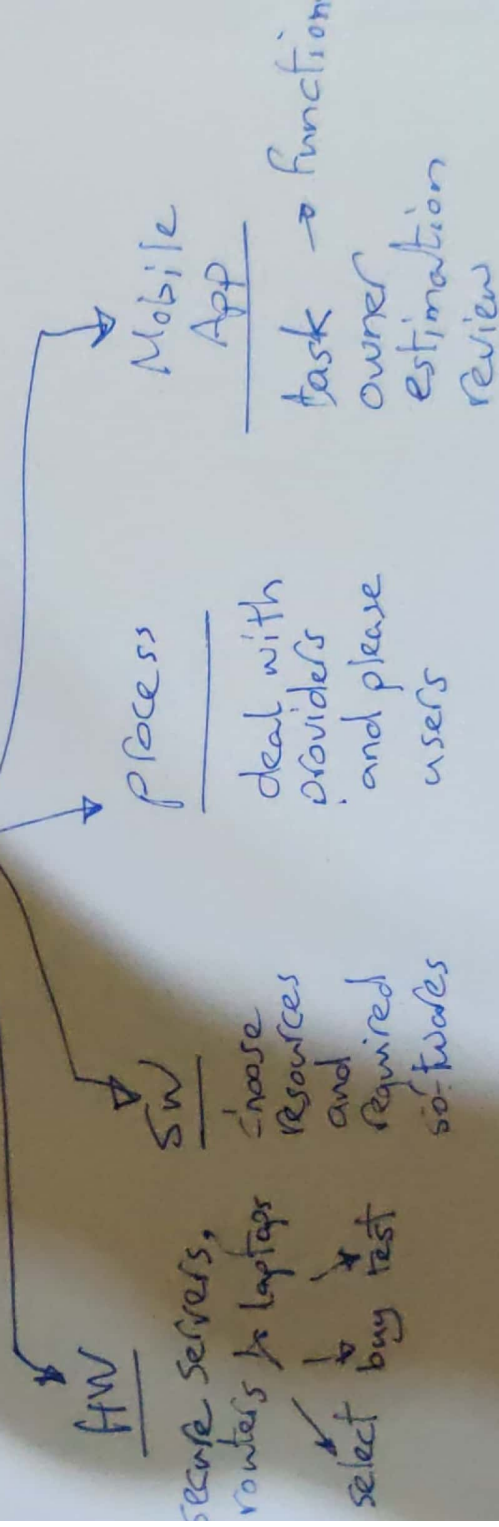 HW
secure servers,
routers & laptops
select buy test
SW
choose
resources
and
required
softwares
process
deal with
providers
and please
users
Mobile
App
task → function
owner
estimation
review